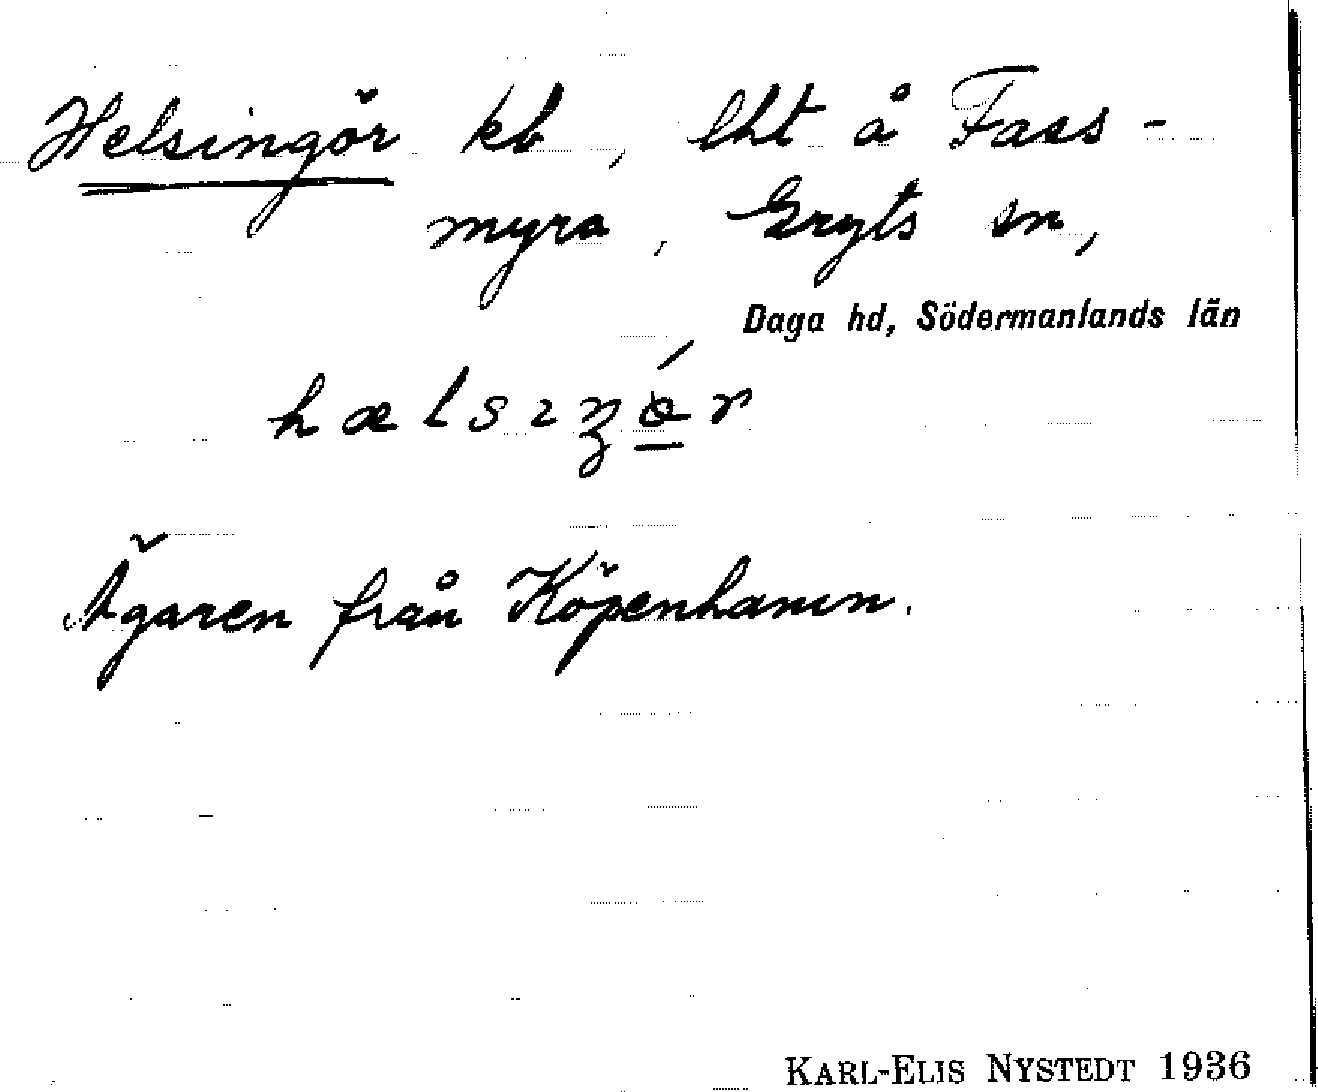 Helsingör kb, lht å Fass-
myra, Gryts sn,
Daga hd, Södermanlands län
hælsıŋǿr
Ägaren från Köpenhamn.
KARL-ELIS NYSTEDT 1936